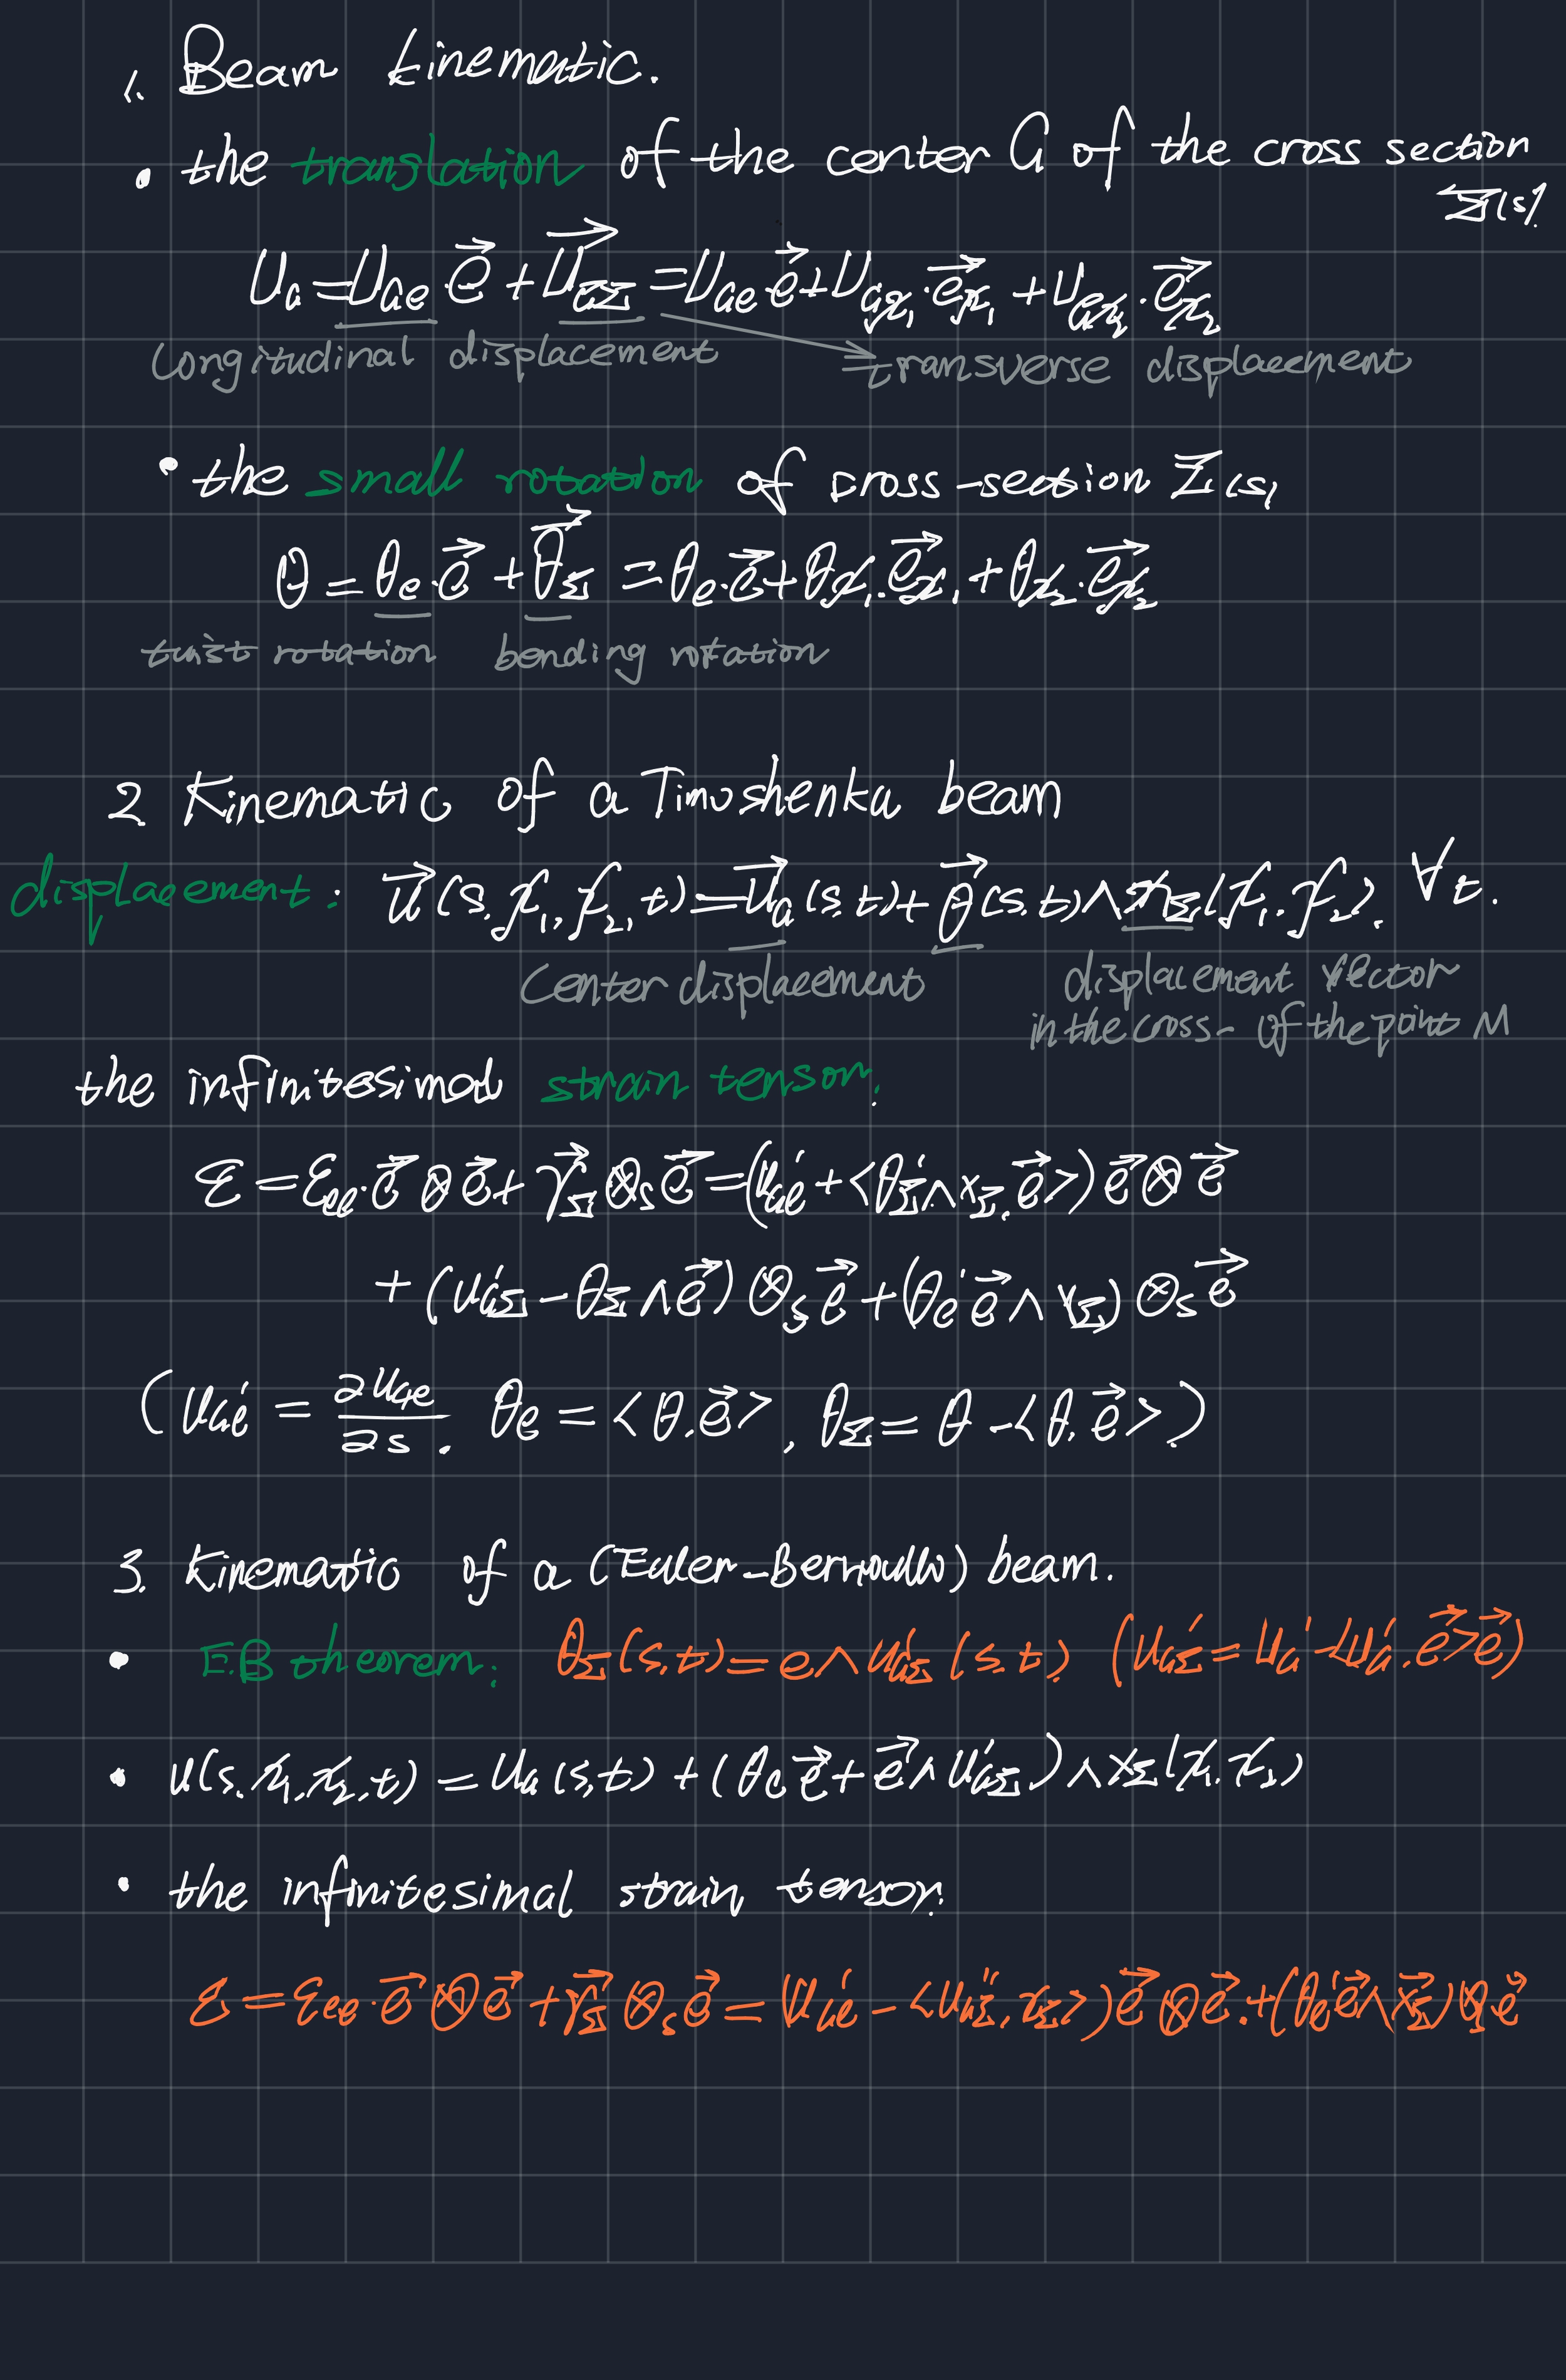 1. Beam kinematic.
• the translation of the center G of the cross section
Σ(s)
U_G = U_Ge·e⃗ + U⃗_GΣ = U_Ge·e⃗ + U_Gx₁·e⃗_x₁ + U_Gx₂·e⃗_x₂
longitudinal displacement → transverse displacement
• the small rotation of cross-section Σ(s)
θ = θe·e⃗ + θ⃗_Σ = θe·e⃗ + θx₁·e⃗_x₁ + θx₂·e⃗_x₂
twist rotation bending rotation
2 Kinematic of a Timoshenko beam
displacement: u⃗(s.x₁,x₂,t) = u⃗_G(s.t) + θ⃗(s.t) ∧ x_Σ(x₁.x₂). ∀t.
Center displacement displacement vector
in the cross- of the point M
the infinitesimal strain tensor.
ε = ε_ee·e⃗ ⊗ e⃗ + γ⃗_Σ ⊗s e⃗ = (u'_Ge + <θ'_Σ ∧ x_Σ, e⃗>) e⃗ ⊗ e⃗
+ (u'_GΣ − θ_Σ ∧ e⃗) ⊗s e⃗ + (θe' e⃗ ∧ x_Σ) ⊗s e⃗
(u'_Ge = ∂u_Ge/∂s. θe = <θ.e⃗>, θ_Σ = θ − <θ, e⃗>)
3. Kinematic of a (Euler-Bernoulli) beam.
• E.B theorem: θ_Σ(s,t) = e ∧ u'_GΣ (s.t) (u'_GΣ = u_G' − <u'_G. e⃗> e⃗)
• u(s.x₁,x₂,t) = u_G (s,t) + (θe e⃗ + e⃗ ∧ u'_GΣ) ∧ x_Σ(x₁.x₂)
• the infinitesimal strain tensor.
ε = ε_ee·e⃗ ⊗ e⃗ + γ⃗_Σ ⊗s e⃗ = (u'_Ge − <u''_GΣ, x_Σ>) e⃗ ⊗ e⃗. + (θe' e⃗ ∧ x⃗_Σ) ⊗s e⃗